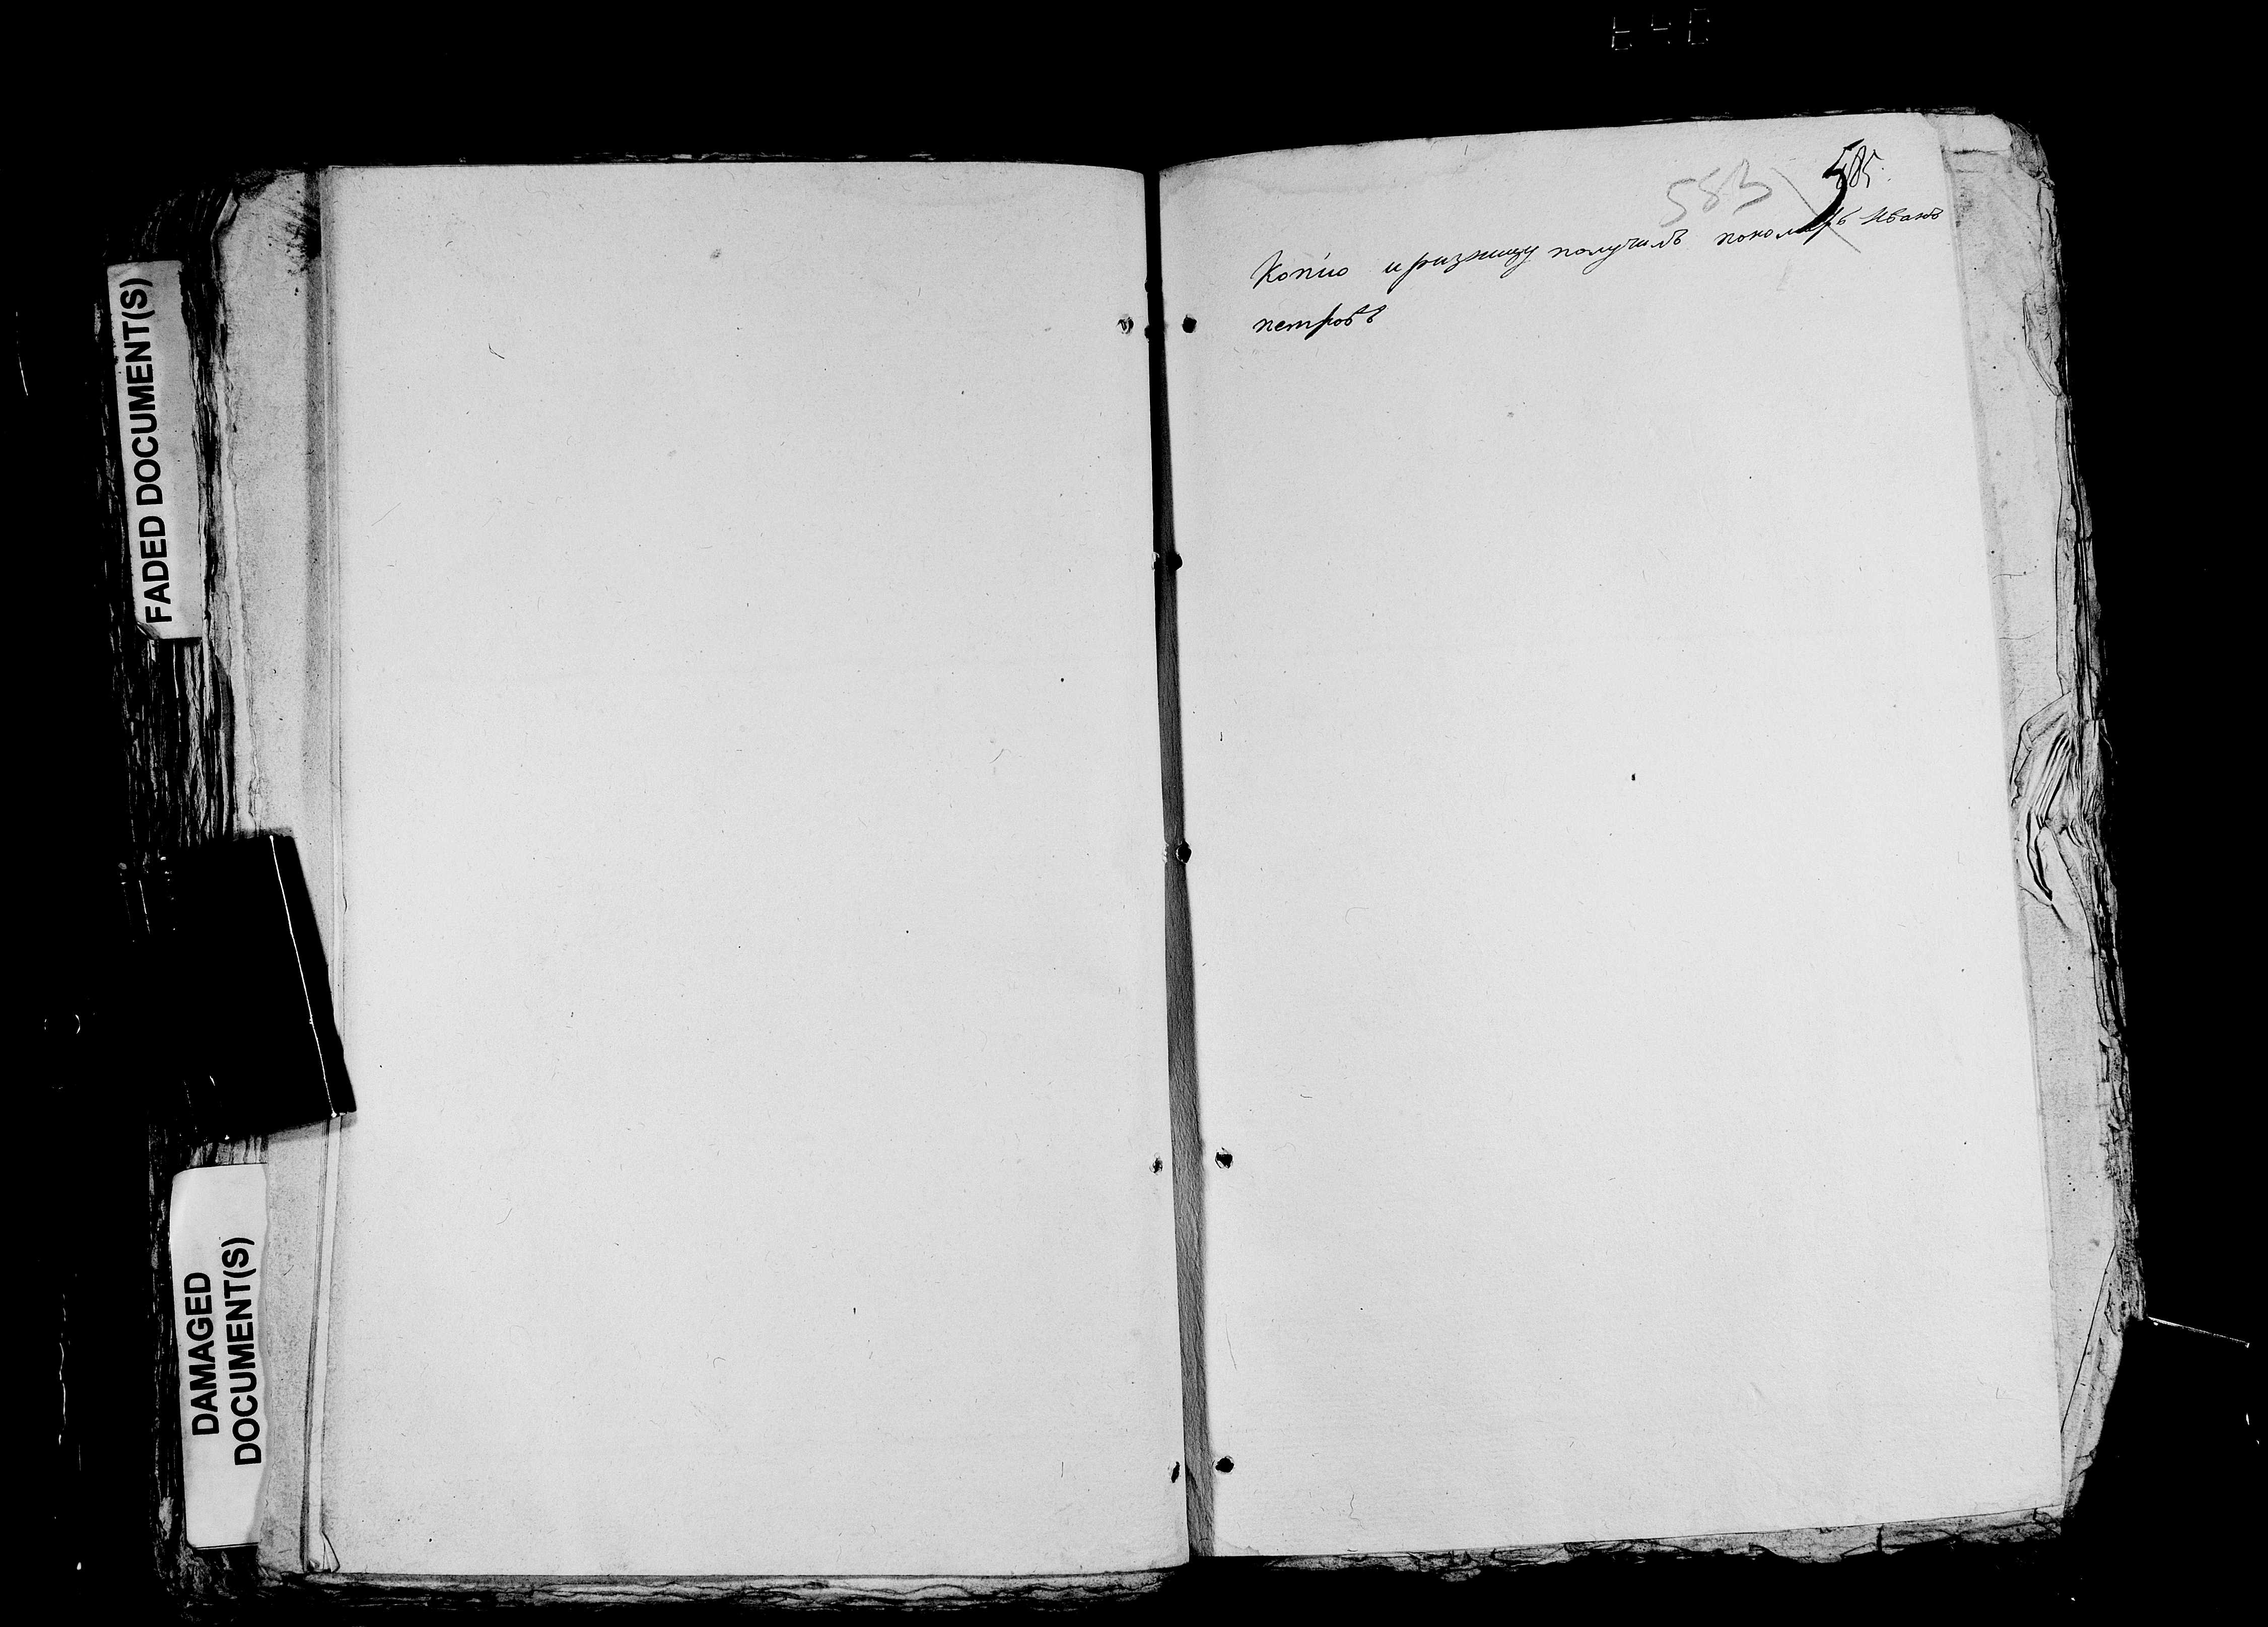 585.
583
Копію и ризницу получилъ пономарь Иванъ
петровъ
FADED DOCUMENT(S)
DAMAGED
DOCUMENT(S)